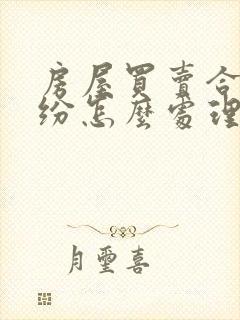 房屋買賣合
紛怎麼處理
月璽喜